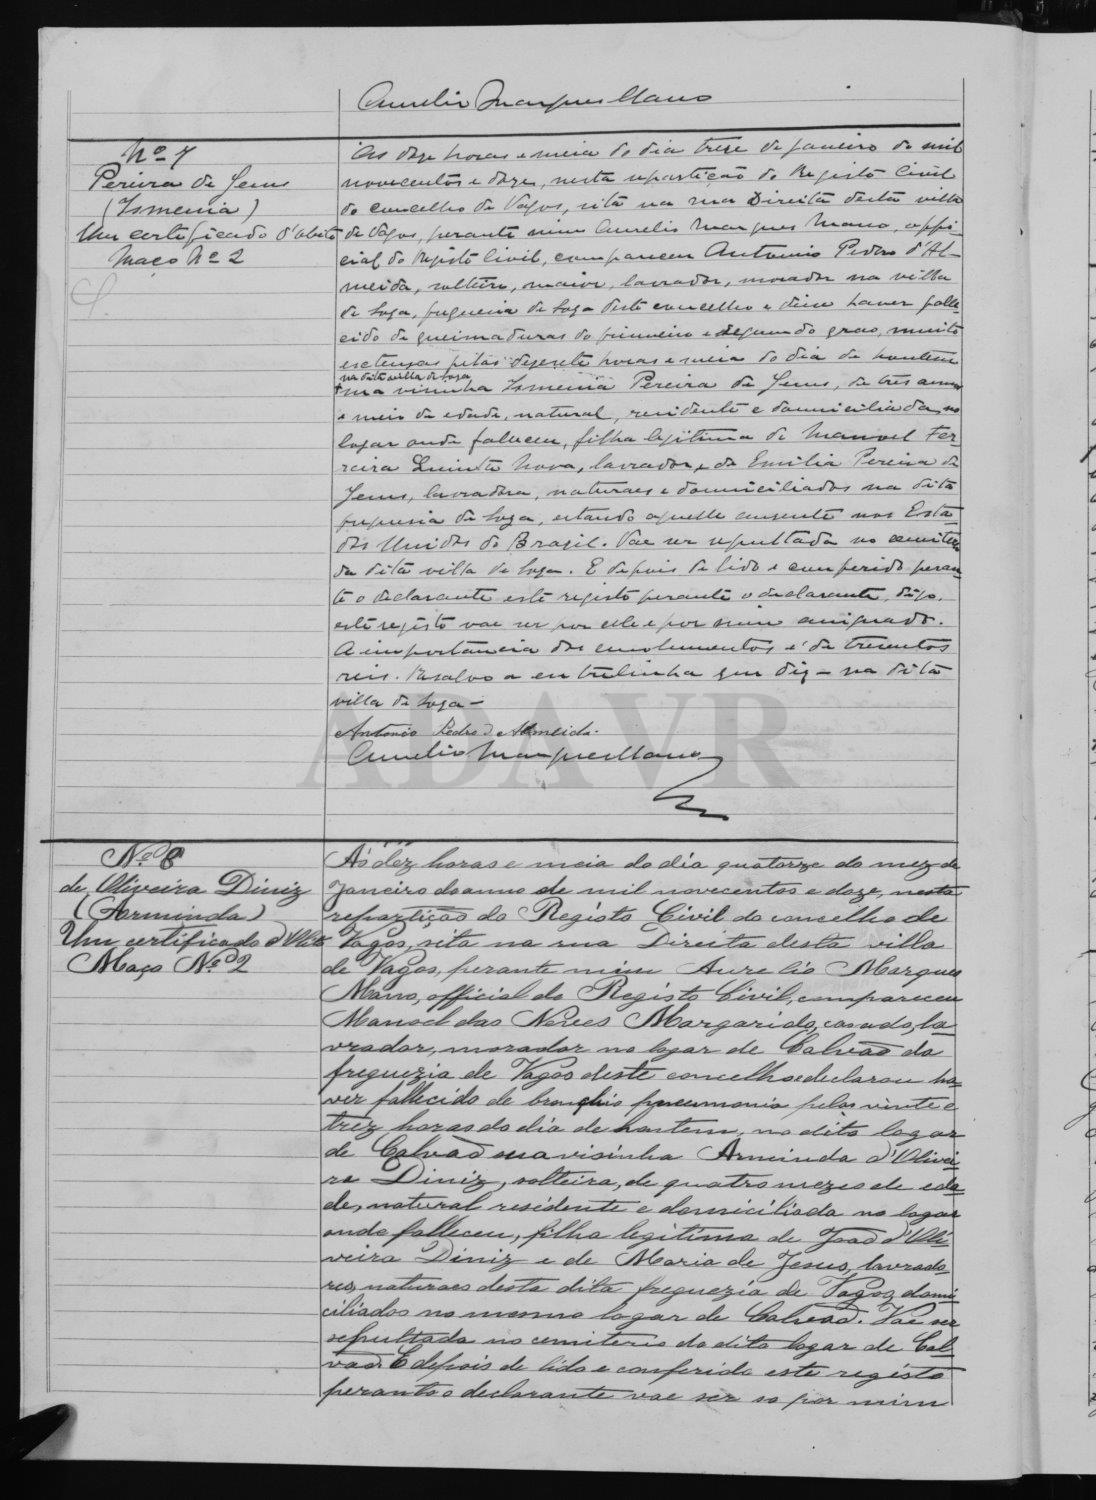 Aurelio Marques Mano
Nº 7
Pereira de Jesus
(Ismenia)
Um certificado d'obito
Maço Nº 2
Ás doze horas e meia do dia treze de janeiro de mil
novecentos e doze, nesta repartição do Registo Civil
do concelho de Vagos, sita na rua Direita desta villa
de Vagos, perante mim Aurelio Marques Mano, offi-
cial do Registo Civil, compareceu Antonio Pedro d'Al-
meida, solteiro, maior, lavrador, morador na villa
de Soza, freguezia de Soza deste concelho e disse haver falle-
cido de queimaduras do primeiro e segundo grao, muito
extensas pelas dezesete horas e meia do dia de hontem
na dita villa de Soza
+ sua visinha Ismenia Pereira de Jesus, de tres annos
e meio de edade, natural, residente e domiciliada no
logar onde faleceu, filha legitima de Manoel Fer-
reira Quinta Nova, lavrador, e de Emilia Pereira de
Jesus, lavradora, naturaes e domiciliados na dita
freguesia de Soza, estando aquelle ausente nos Esta-
dos Unidos do Brazil. Vae ser sepultada no cemiterio
da dita villa de Soza. E depois de lido e conferido peran-
te o declarante este registo perante o declarante, digo,
este registo vae ser por elle e por mim assignado.
A importancia dos emolumentos é de trezentos
reis. Resalvo a entrelinha que diz - na dita
villa de Soza -
Antonio Pedro d'Almeida.
Aurelio Marques Mano
ADAVR
Nº 8
de Oliveira Diniz
(Arminda)
Um certificado d'Obito
Maço Nº 2
Ás dez horas e meia do dia quatorze do mez de
Janeiro do anno de mil novecentos e doze, nesta
repartição do Registo Civil do concelho de
Vagos, sita na rua Direita desta villa
de Vagos, perante mim Aurelio Marques
Mano, official do Registo Civil, compareceu
Manoel das Neves Margarido, casado, la-
vrador, morador no logar de Calvão da
freguezia de Vagos deste concelho e declarou ha-
ver fallecido de broncho pneumonia pelas vinte e
trez horas do dia de hontem, no dito logar
de Calvão sua visinha Arminda d'Olivei-
ra Diniz, solteira, de quatro mezes de eda-
de, natural residente e domiciliada no logar
onde falleceu, filha legitima de João d'Oli-
veira Diniz e de Maria de Jesus, lavrado-
res, naturaes desta dita freguezia de Vagos, domi-
ciliados no mesmo logar de Calvão. Vae ser
sepultada no cemiterio do dito logar de Cal-
vão. E depois de lido e conferido este registo
perante o declarante vae ser so por mim